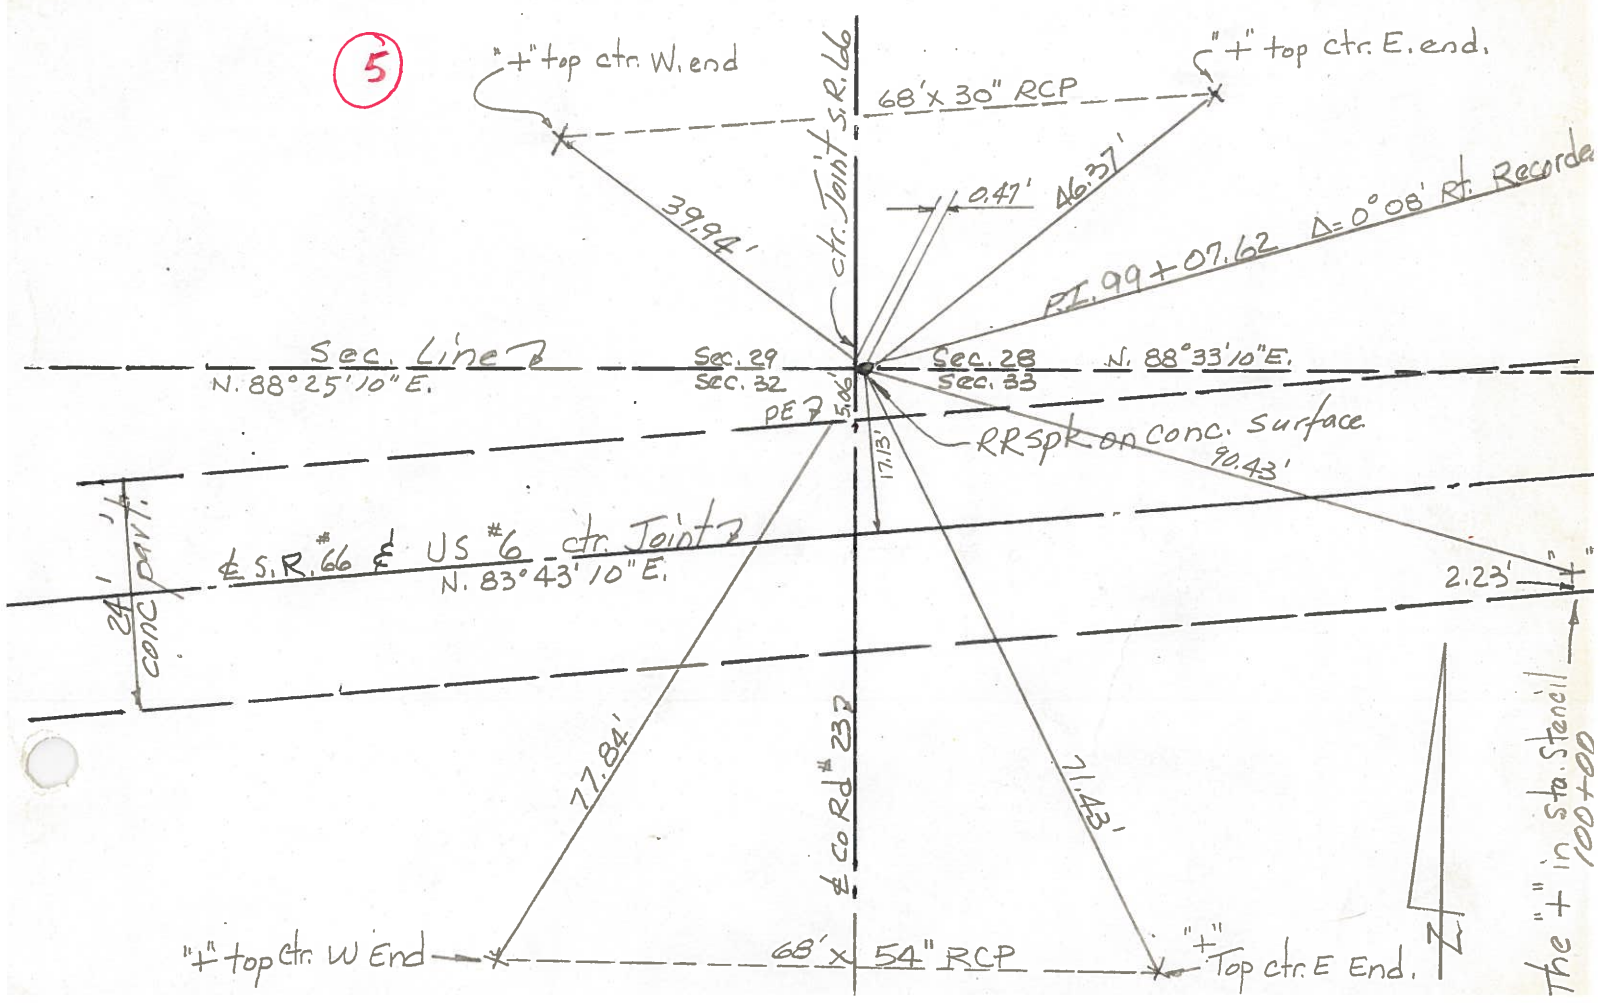 5
"+" top ctr. W. end
"+" top ctr. E. end.
68' x 30" RCP
ctr. Joint S.R. 66
39.94'
0.47'
46.37'
P.I. 99+07.62 Δ=0°08' Rt. Recorde
Sec. Line
N. 88°25'10"E.
Sec. 29
Sec. 32
Sec. 28
Sec. 33
N. 88°33'10"E.
PE
5.06'
17.13'
RR spk on conc. surface.
90.43'
24' '±
conc pavt.
℄ S.R. #66 & US #6 ctr. Joint
N. 83°43'10"E.
2.23'
"+"
77.84'
71.43'
℄ Co Rd # 232
The "+" in Sta. Stencil
100+00
N
"+" top ctr. W End
68' x 54" RCP
"+"
Top ctr. E End.